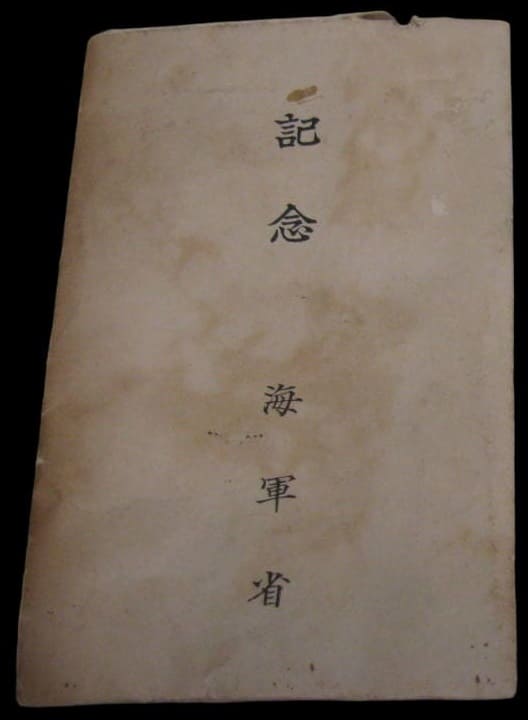 記念
海軍省